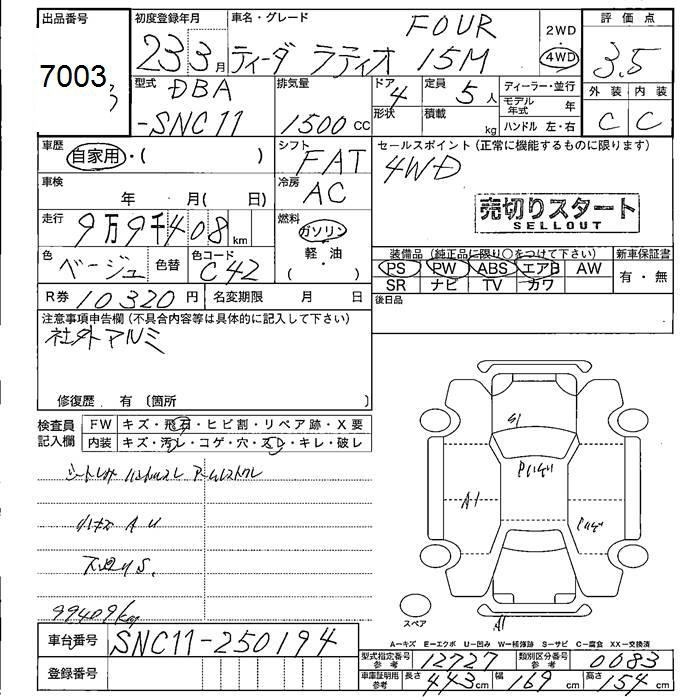 出品番号 初度登録年月 車名・グレード FOUR 2WD 評価点
7003 23 3月 ティーダ ラティオ 15M 4WD 3.5
型式 DBA 排気量 ドア 4 定員 5人 ディーラー・並行 外装 内装
-SNC11 1500cc 形状 積載 kg モデル年式 年 C C
ハンドル 左・右
車歴 自家用・( ) シフト FAT セールスポイント (正常に機能するものに限ります)
4WD
車検 年 月( 日) 冷房 AC
売切りスタート
SELLOUT
走行 9万9千408km 燃料 ガソリン
軽・油
( ・ )
色 ベージュ 色替 色コード C42
装備品 (純正品に限り○をつけて下さい) 新車保証書
PS PW ABS エアB AW 有・無
SR ナビ TV カワ
R券 10320円 名変期限 月 日 後日品
注意事項申告欄(不具合内容等は具体的に記入して下さい)
社外アルミ
修復歴 有 〔箇所 〕
検査員 FW キズ・飛石・ヒビ割・リペア跡・X要
記入欄 内装 キズ・汚レ・コゲ・穴・スレ・キレ・破レ
S1
A1
小キズ A U
99409km
A1
スペア
A-キズ E-エクボ U-凹み W-補修跡 S-サビ C-腐食 XX-交換済
車台番号 SNC11-250194
型式指定番号 参考 12727 類別区分番号 参考 0083
登録番号
車庫証明用 参考 長さ 443cm 幅 169cm 高さ 154cm